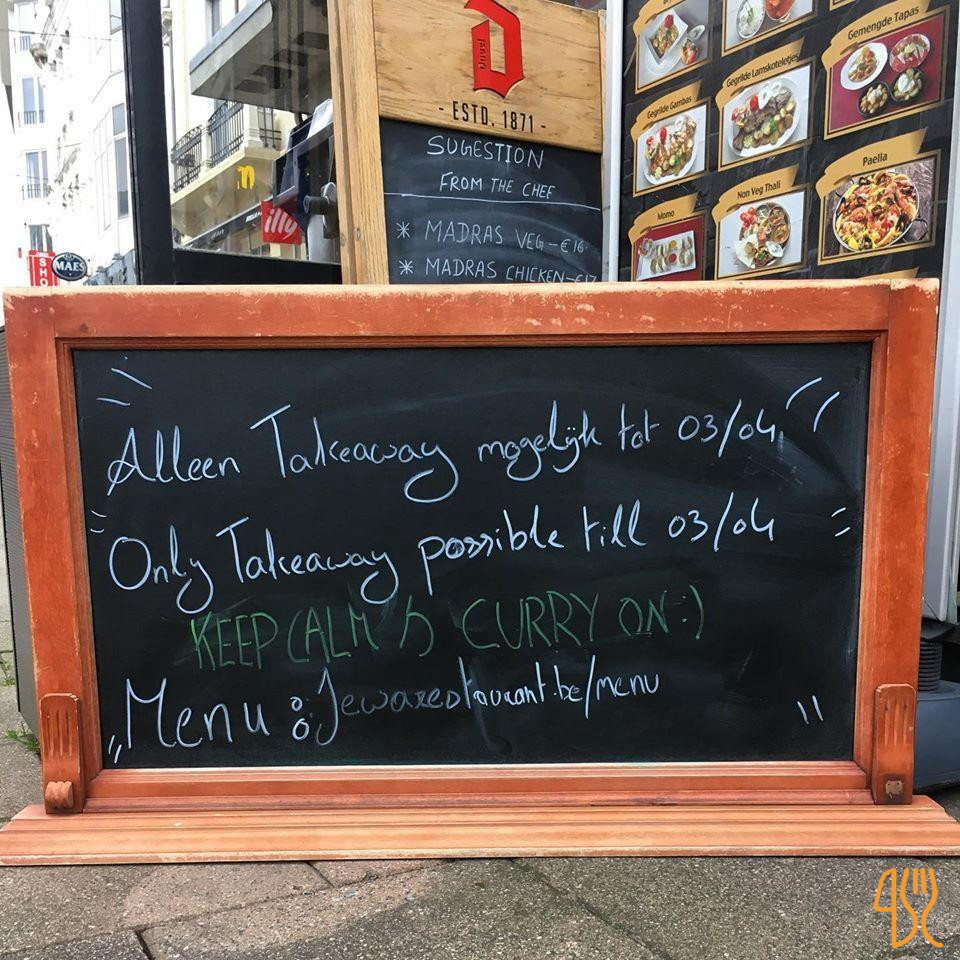 Duvel
- ESTD. 1871 -
SUGESTION
FROM THE CHEF
* MADRAS VEG - €16.
* MADRAS CHICKEN - €17
Gemengde Tapas
Gegrilde Lamskoteletjes
Gegrilde Gambas
Paella
Non Veg Thali
Momo
illy
MAES
Alleen Takeaway mogelijk tot 03/04,
Only Takeaway possible till 03/04
KEEP CALM & CURRY ON :)
Menu : Jewarestaurant.be/menu